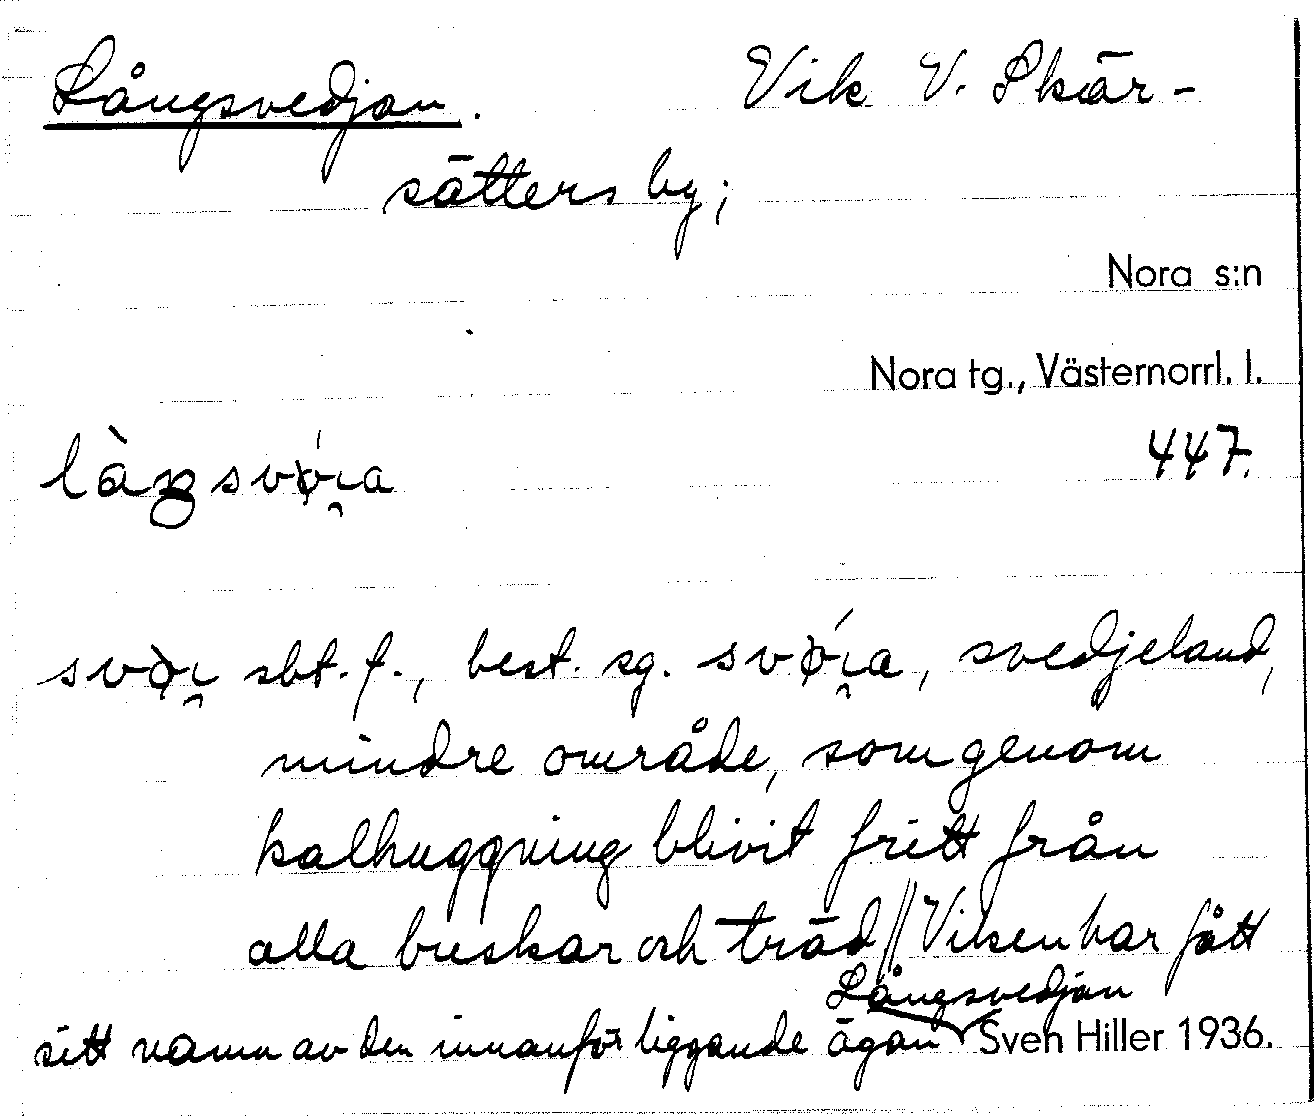 Långsvedjan. Vik V. Skär-
sätters by;
Nora s:n
Nora tg., Västernorrl. l.
447.
sbt. f., best. sg. svedjeland,
mindre område, som genom
kalhuggning blivit fritt från
alla buskar och träd // Viken har fått
Långsvedjan
sitt namn av den innanför liggande ägan
Sven Hiller 1936.